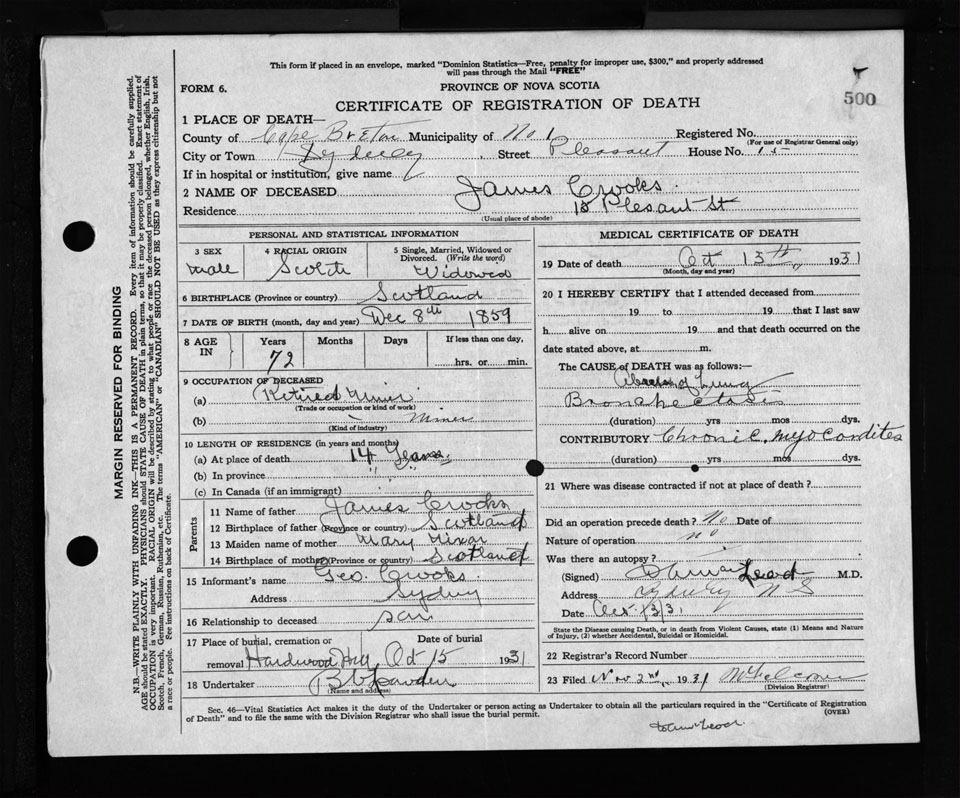 This form if placed in an envelope, marked "Dominion Statistics—Free, penalty for improper use, $300," and properly addressed
will pass through the Mail "FREE"
FORM 6.
PROVINCE OF NOVA SCOTIA
500
CERTIFICATE OF REGISTRATION OF DEATH
1 PLACE OF DEATH—
County of Cape Breton Municipality of No 1 Registered No.
(For use of Registrar General only)
City or Town Sydney Street Pleasant House No. 15
If in hospital or institution, give name
2 NAME OF DECEASED James Crooks
Residence 15 Plesant St
(Usual place of abode)
PERSONAL AND STATISTICAL INFORMATION
3 SEX male
4 RACIAL ORIGIN Scotch
5 Single, Married, Widowed or Divorced. (Write the word) Widowed
6 BIRTHPLACE (Province or country) Scotland
7 DATE OF BIRTH (month, day and year) Dec 8th 1859
8 AGE IN Years Months Days If less than one day,
72 hrs. or min.
9 OCCUPATION OF DECEASED
(a) Retired Miner
(Trade or occupation or kind of work)
(b) Miner
(Kind of industry)
10 LENGTH OF RESIDENCE (in years and months)
(a) At place of death 14 Years
(b) In province " "
(c) In Canada (if an immigrant)
Parents
11 Name of father James Crooks
12 Birthplace of father (Province or country) Scotland
13 Maiden name of mother Mary Nixon
14 Birthplace of mother (Province or country) Scotland
15 Informant's name Geo. Crooks
Address Sydney
16 Relationship to deceased son
17 Place of burial, cremation or removal Hardwood Hill Date of burial Oct 15 1931
18 Undertaker
(Name and address)
MEDICAL CERTIFICATE OF DEATH
19 Date of death Oct 13th, 1931
(Month, day and year)
20 I HEREBY CERTIFY that I attended deceased from
19 to 19 that I last saw
h alive on 19 and that death occurred on the
date stated above, at m.
The CAUSE of DEATH was as follows:—
Abscess of Lung
Bronchectasis
(duration) yrs mos dys.
CONTRIBUTORY Chronic myocardites
(duration) yrs mos dys.
21 Where was disease contracted if not at place of death?
Did an operation precede death? No Date of
Nature of operation no
Was there an autopsy?
(Signed) M.D.
Address Sydney N S
Date Oct 13/31
State the Disease causing Death, or in death from Violent Causes, state (1) Means and Nature
of Injury, (2) whether Accidental, Suicidal or Homicidal.
22 Registrar's Record Number
23 Filed Nov 2nd, 1931
(Division Registrar)
Sec. 46—Vital Statistics Act makes it the duty of the Undertaker or person acting as Undertaker to obtain all the particulars required in the "Certificate of Registration
of Death" and to file the same with the Division Registrar who shall issue the burial permit.
(OVER)
MARGIN RESERVED FOR BINDING
N.B.—WRITE PLAINLY WITH UNFADING INK—THIS IS A PERMANENT RECORD. Every item of information should be carefully supplied.
AGE should be stated EXACTLY. PHYSICIANS should STATE CAUSE OF DEATH in plain terms, so that it may be properly classified. Exact statement of
OCCUPATION is very important. RACIAL ORIGIN will be described by stating to what people or race the deceased person belonged, whether English, Irish,
Scotch, French, German, Russian, Ruthenian, etc. The terms "AMERICAN" or "CANADIAN" SHOULD NOT BE USED as they express citizenship but not
a race or people. See instructions on back of Certificate.